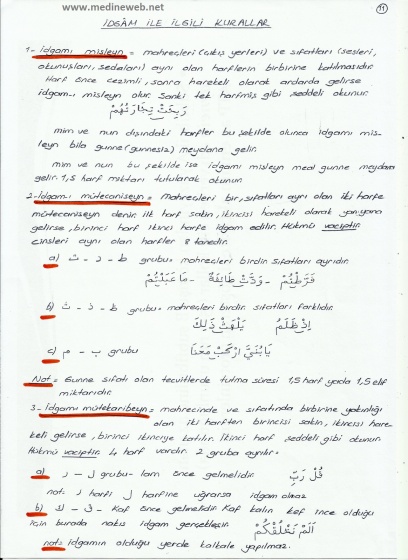 www.medineweb.net
11
İDGÂM İLE İLGİLİ KURALLAR
1- İdgamı misleyn = mahrecleri (çıkış yerleri) ve sıfatları (sesleri,
okunuşları, sedaları) aynı olan harflerin birbirine katılmasıdır.
Harf önce cezimli, sonra harekeli olarak ardarda gelirse
idgam-ı misleyn olur. Sanki tek harfmiş gibi şeddeli okunur.
رَبِحَتْ تِجَارَتُهُمْ
mim ve nun dışındaki harfler bu şekilde olunca idgamı mis-
leyn bila gunne (gunnesiz) meydana gelir.
mim ve nun bu şekilde ise idgamı misleyn meal gunne meydana
gelir. 1,5 harf miktarı tutularak okunur.
2- İdgam-ı mütecaniseyn = mahrecleri bir, sıfatları ayrı olan iki harfe
mütecaniseyn denir. ilk harf sakin, ikincisi harekeli olarak yanyana
gelirse, birinci harf ikinci harfe idgam edilir. Hükmü vaciptir.
cinsleri aynı olan harfler 8 tanedir.
a) ط - د - ت grubu = mahrecleri birdir sıfatları ayrıdır.
فَرَّطْتُمْ - وَدَّتْ طَائِفَةٌ - مَا عَبَدْتُمْ
b) ظ - ذ - ث grubu = mahrecleri birdir. sıfatları farklıdır.
اِذْ ظَلَمُو يَلْهَثْ ذٰلِكَ
c) ب - م grubu يَا بُنَيَّ ارْكَبْ مَعَنَا
Not = Gunne sıfatı olan tecvitlerde tutma süresi 1,5 harf yada 1,5 elif
miktarıdır.
3- İdgamı mütekaribeyn = mahrecinde ve sıfatında birbirine yakınlığı
olan iki harften birincisi sakin, ikincisi hare-
keli gelirse, birinci ikinciye katılır. İkinci harf şeddeli gibi okunur.
Hükmü vaciptir. 4 harf vardır. 2 gruba ayrılır =
a) ل - ر grubu - lam önce gelmelidir. قُلْ رَبِّ
not = ر harfi ل harfine uğrarsa idgam olmaz
b) ق - ك Kaf önce gelmelidir. Kaf kalın kef ince olduğu
için burada nakıs idgam gerçekleşir. اَلَمْ نَخْلُقْكُمْ
not = idgamın olduğu yerde kalkale yapılmaz.